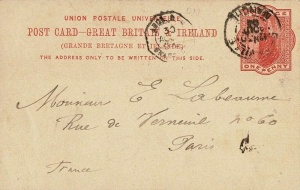 UNION POSTALE UNIVERSELLE
POST CARD–GREAT BRITAIN & IRELAND
(GRANDE BRETAGNE ET IRLANDE)
THE ADDRESS ONLY TO BE WRITTEN ON THIS SIDE.
ONE PENNY
Monsieur E Labeaume
Rue de Verneuil No 60
Paris
France